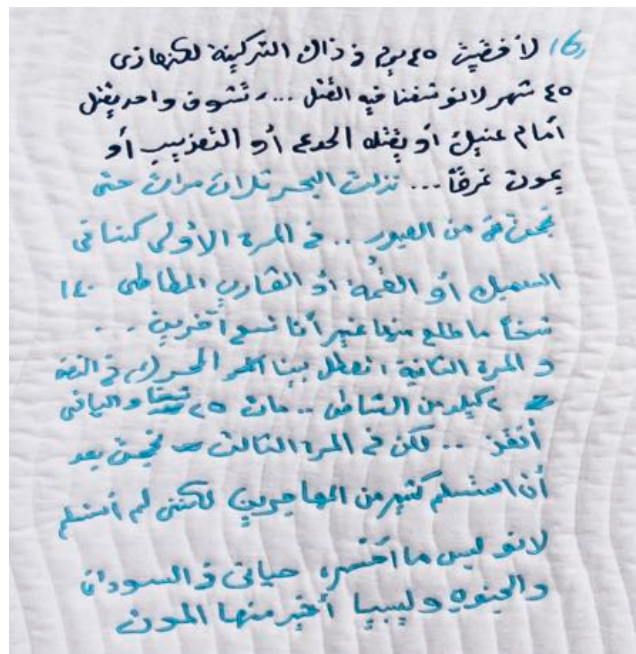 16) لأ قضيت ٤٥ يوم في ذاك التركينة لكنها زى
٤٥ شهر لانو شفنا فيه القتل ... تشوف واحد يقتل
أمام عنيك أو يقتله الجوع أو التعذيب أو
يموت غرقاً ... نزلت البحر تلات مرات حتى
نجحت من العبور .. في المرة الأولى كنا في
السمبك أو القمة أو القارب المطاطى ١٤٠
شخاً ما طلع منها غير أنا تسع آخرين ...
و المرة التانية اتعطل بينا المحرك في
٢ كيلو من الشاطى .. مات ٢٥ والباقى
أنقذ .. لكن في المرة التالت نجحت بعد
أن استسلم كثير من المهاجرين لكننى لم أستسلم
لانو ليس ما أخسره حياتى في السودان
والجنوب وليبيا أخير منها الموت